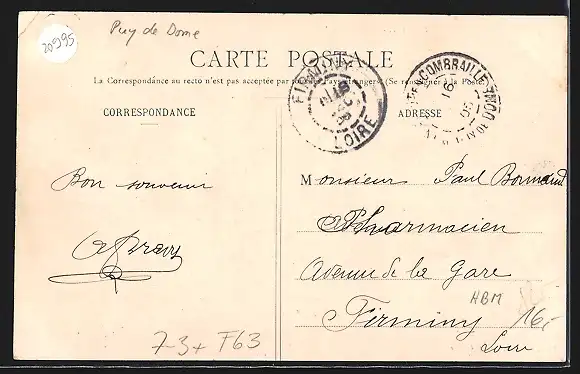 Puy de Dome
20995
CARTE POSTALE
La Correspondance au recto n'est pas acceptée par tous les Pays étrangers (Se renseigner à la Poste)
CORRESPONDANCE
ADRESSE
FIRMINY
LOIRE
COMBRAILLE
PUY-DE-DOME
Bon souvenir
Monsieur Paul Bormand
Pharmacien
Avenue de la Gare
Firminy
Loire
HBM
16,-
73+ F63